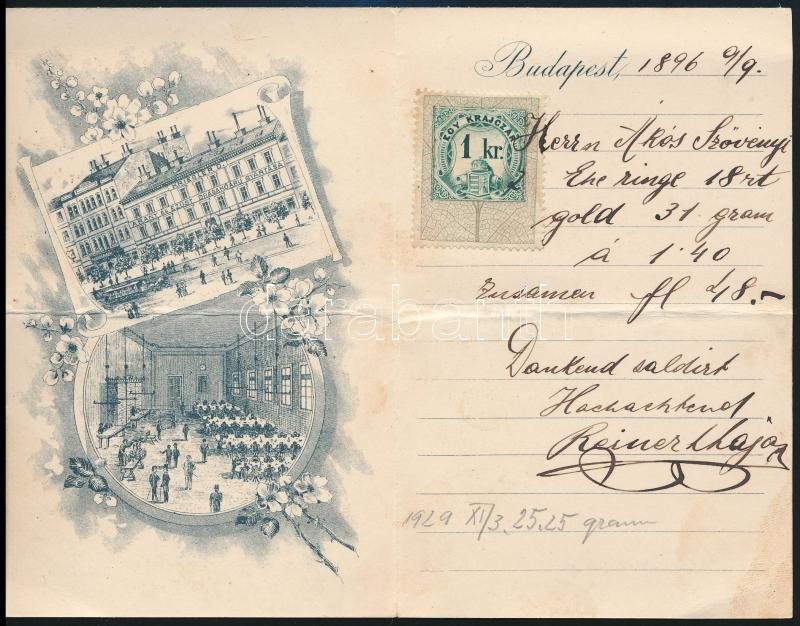 Budapest, 1896 9/9.
EGY KRAJCZÁR
1 kr.
Herrn Ákós Szövényi
Ehe ringe 18 rt
gold 31 gram
á 1·40
Zusamen fl 48.-
Dankend saldirt
Hochachtend
Reiner
1929 XI/3. 25.25 gramm
darabanth